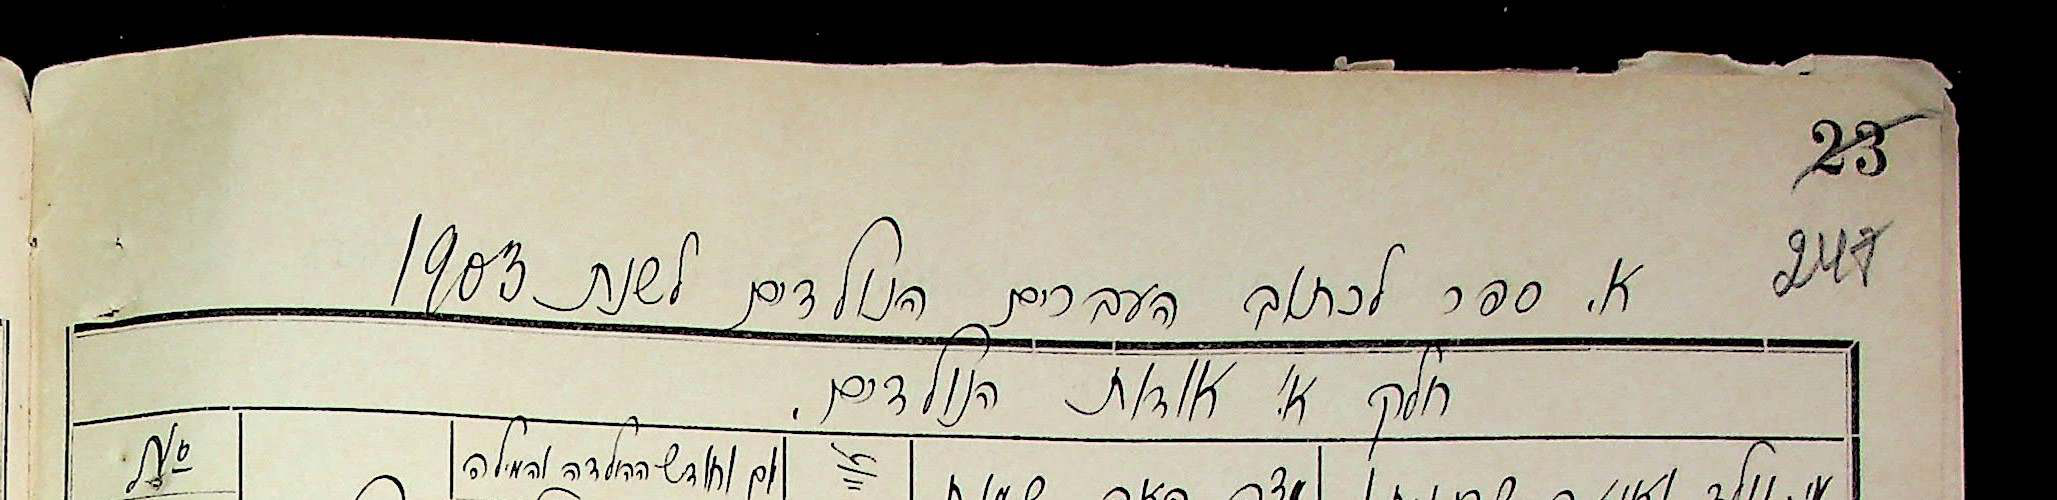 23
247
א. ספר לכתוב העברים הנולדים לשנת 1903
חלק א' אודות הנולדים.
יום וחודש ההולדה והמילה
№